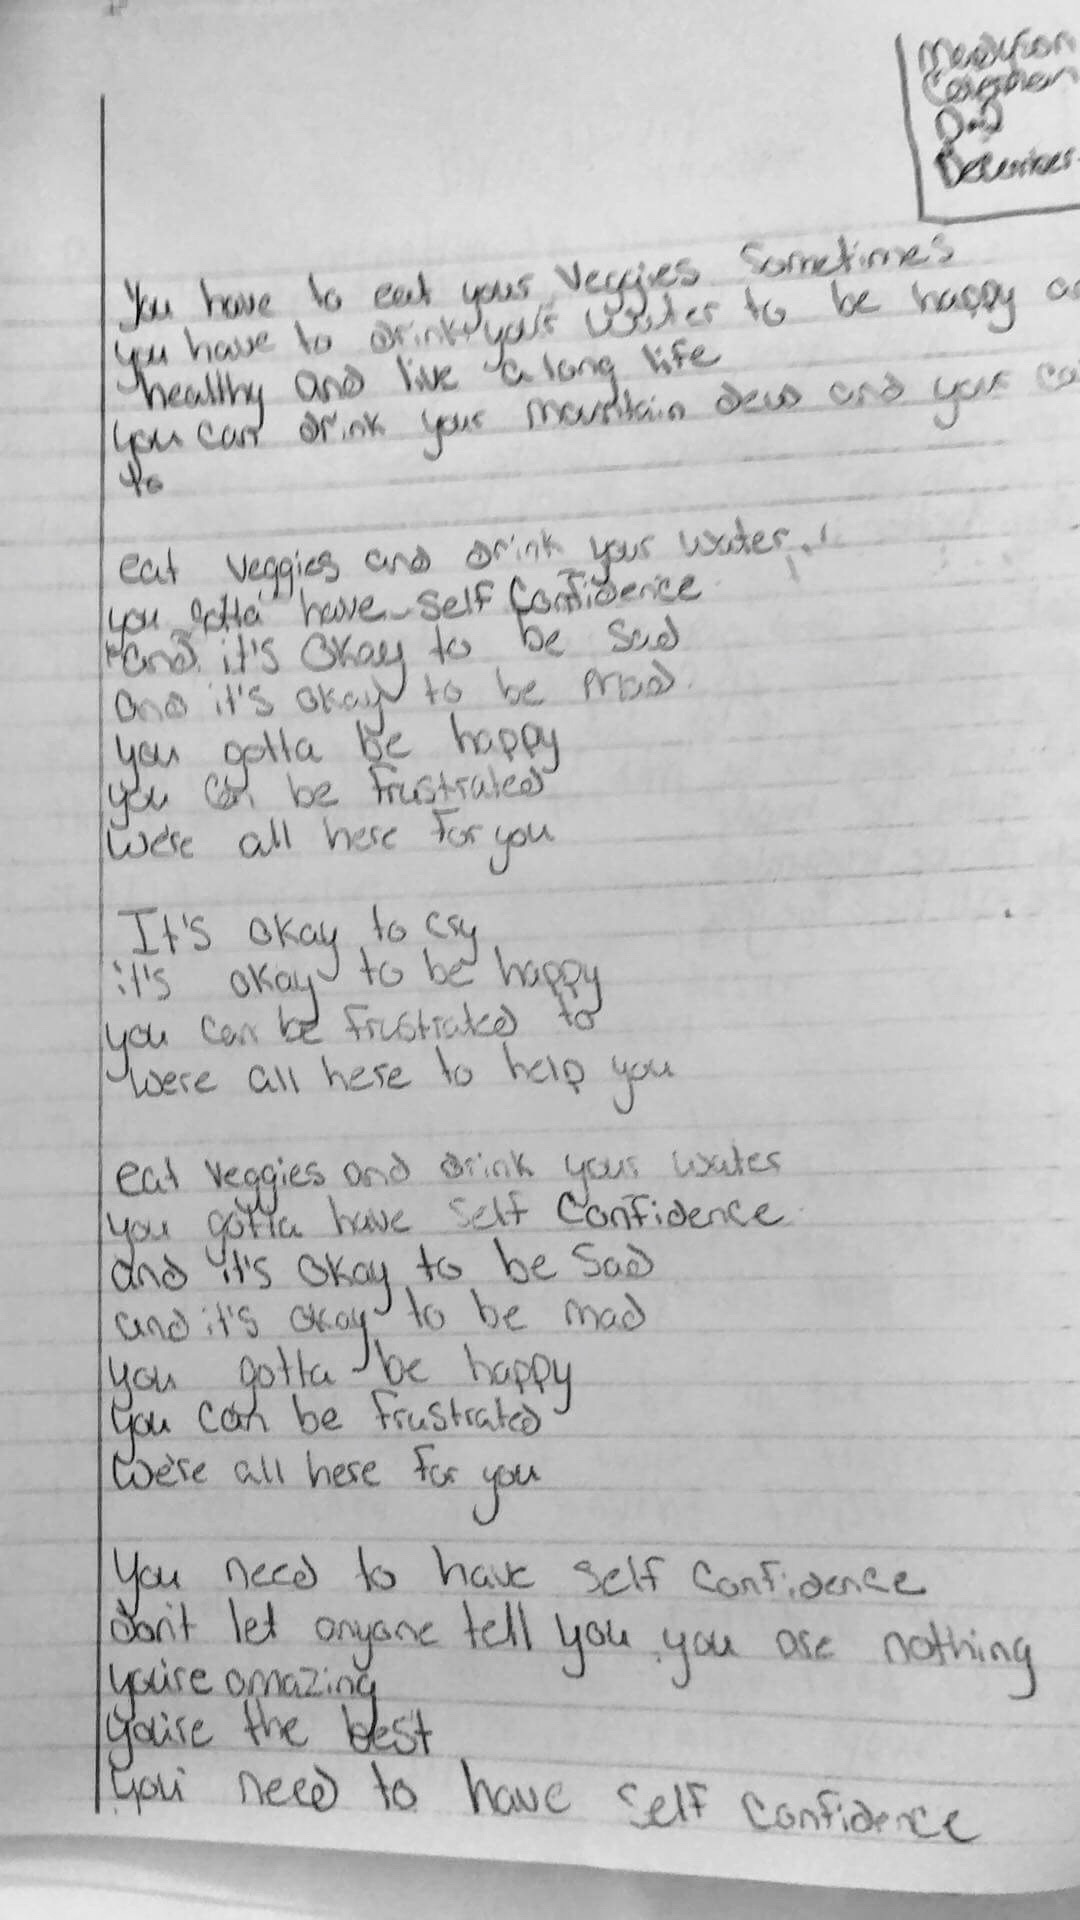 You have to eat your veggies sometimes
you have to drink your water to be happy
healthy and live a long life
you can drink your mountain dew and your
to
eat veggies and drink your water
you gotta have self confidence
and it's okay to be sad
and it's okay to be mad
you gotta be happy
you can be frustrated
we're all here for you
It's okay to cry
it's okay to be happy
you can be frustrated to
were all here to help you
eat veggies and drink your water
you gotta have self confidence
and it's okay to be sad
and it's okay to be mad
you gotta be happy
you can be frustrated
we're all here for you
You need to have self confidence
don't let anyone tell you you are nothing
you're amazing
you're the best
you need to have self confidence